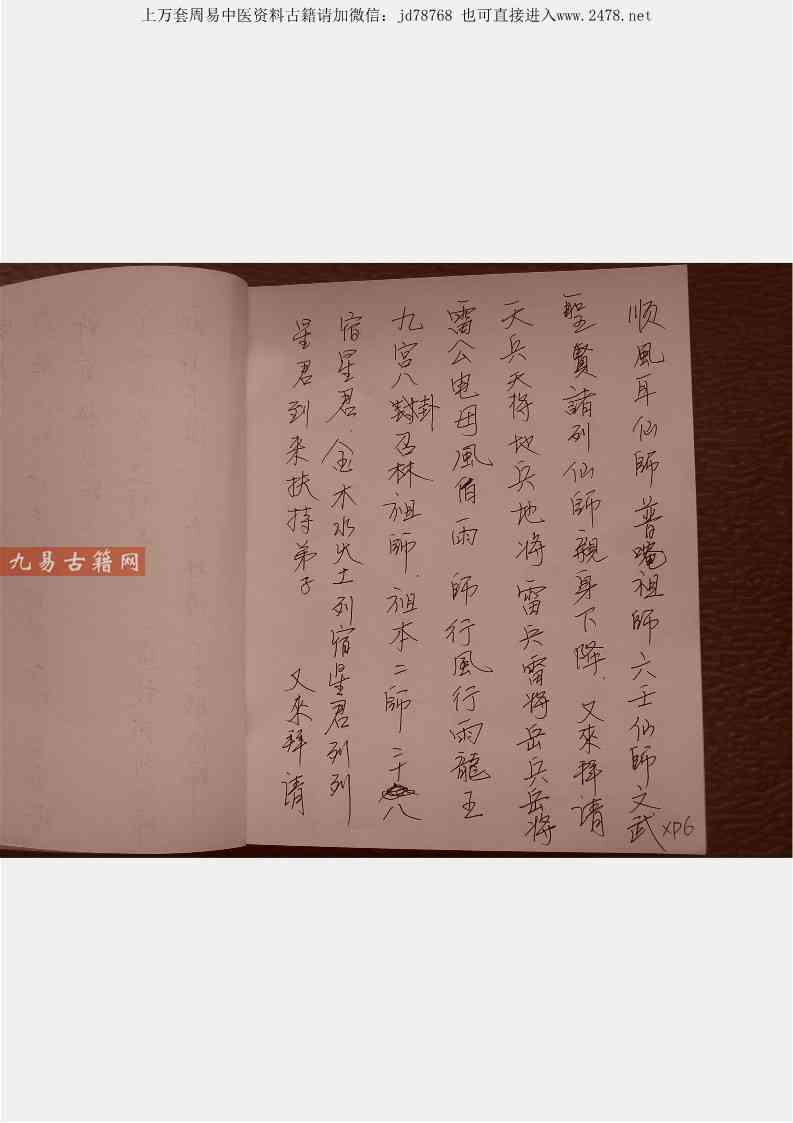 上万套周易中医资料古籍请加微信：jd78768 也可直接进入www.2478.net
顺風耳仙師普唵祖師六壬仙師文武
聖賢諸列仙師親身下降．又來拜请
天兵天将地兵地将雷兵雷将岳兵岳将
雷公电母風伯雨師行風行雨龍王
九宫八卦召林祖師．祖本二師二十八
宿星君．金木水火土列宿星君列列
星君到来扶持弟子 又來拜请
XP6
九易古籍网